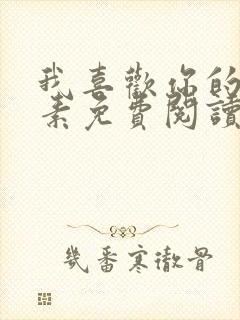 我喜歡你的
素免費閱讀
幾番寒徹骨